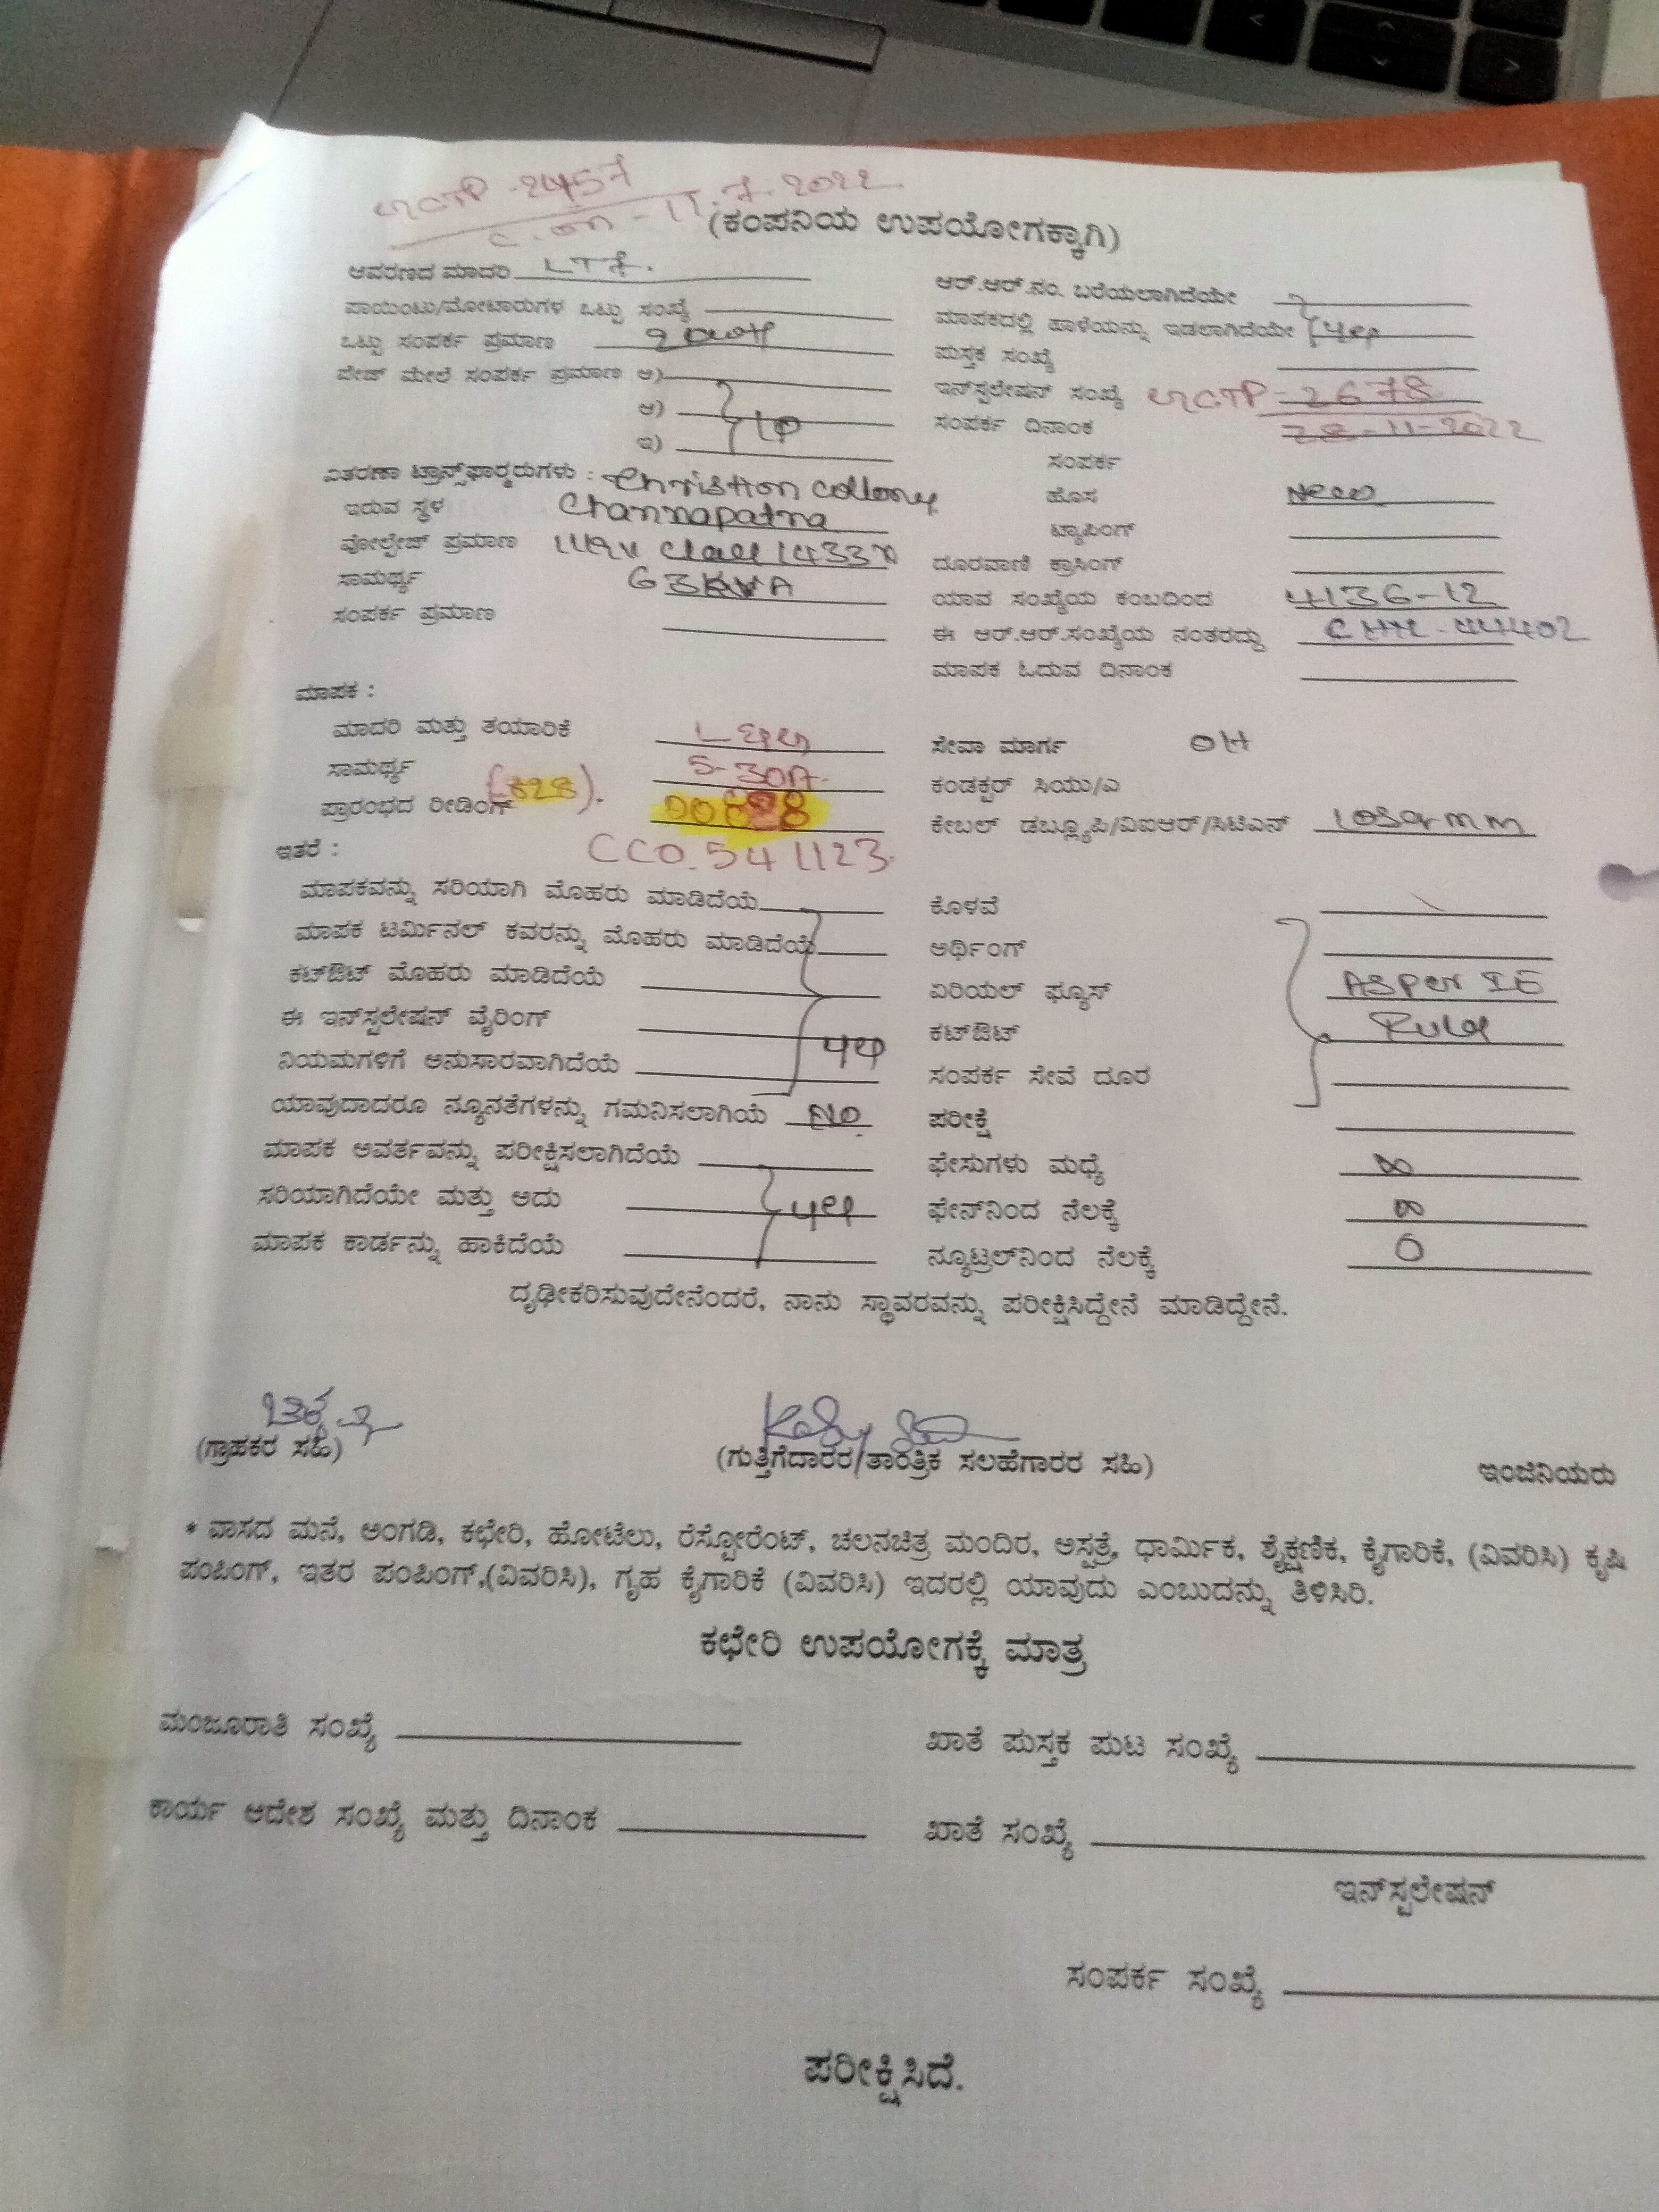 -2457
11.7.2022
(ಕಂಪನಿಯ ಉಪಯೋಗಕ್ಕಾಗಿ)
ಆವರಣದ ಮಾದರಿ LT7.
ಪಾಯಿಂಟು/ಮೋಟಾರುಗಳ ಒಟ್ಟು ಸಂಖ್ಯೆ
ಒಟ್ಟು ಸಂಪರ್ಕ ಪ್ರಮಾಣ
ಪೇಜ್ ಮೇಲೆ ಸಂಪರ್ಕ ಪ್ರಮಾಣ ಅ)
ಆ)
ಇ)
ವಿತರಣಾ ಟ್ರಾನ್ಸ್‌ಫಾರ್ಮರುಗಳು : Christian Collony
ಇರುವ ಸ್ಥಳ Channapatna
ವೋಲ್ಟೇಜ್ ಪ್ರಮಾಣ
ಸಾಮರ್ಥ್ಯ 63KVA
ಸಂಪರ್ಕ ಪ್ರಮಾಣ
ಆರ್.ಆರ್.ನಂ. ಬರೆಯಲಾಗಿದೆಯೇ
ಮಾಪಕದಲ್ಲಿ ಹಾಳೆಯನ್ನು ಇಡಲಾಗಿದೆಯೇ yes
ಪುಸ್ತಕ ಸಂಖ್ಯೆ
ಇನ್‌ಸ್ಟಲೇಷನ್ ಸಂಖ್ಯೆ -2678
ಸಂಪರ್ಕ ದಿನಾಂಕ 28-11-2022
ಸಂಪರ್ಕ
ಹೊಸ New
ಟ್ಯಾಪಿಂಗ್
ದೂರವಾಣಿ ಕ್ರಾಸಿಂಗ್
ಯಾವ ಸಂಖ್ಯೆಯ ಕಂಬದಿಂದ 4136-12
ಈ ಆರ್.ಆರ್.ಸಂಖ್ಯೆಯ ನಂತರದ್ದು
ಮಾಪಕ ಓದುವ ದಿನಾಂಕ
ಮಾಪಕ :
ಮಾದರಿ ಮತ್ತು ತಯಾರಿಕೆ
ಸಾಮರ್ಥ್ಯ 5-30A.
ಪ್ರಾರಂಭದ ರೀಡಿಂಗ್ (828). 00828
ಇತರೆ : CCO.541123.
ಮಾಪಕವನ್ನು ಸರಿಯಾಗಿ ಮೊಹರು ಮಾಡಿದೆಯೆ
ಮಾಪಕ ಟರ್ಮಿನಲ್ ಕವರನ್ನು ಮೊಹರು ಮಾಡಿದೆಯೆ
ಕಟ್‌ಔಟ್ ಮೊಹರು ಮಾಡಿದೆಯೆ
ಈ ಇನ್‌ಸ್ಟಲೇಷನ್ ವೈರಿಂಗ್
ನಿಯಮಗಳಿಗೆ ಅನುಸಾರವಾಗಿದೆಯೆ yes
ಯಾವುದಾದರೂ ನ್ಯೂನತೆಗಳನ್ನು ಗಮನಿಸಲಾಗಿಯೆ No
ಮಾಪಕ ಅವರ್ತವನ್ನು ಪರೀಕ್ಷಿಸಲಾಗಿದೆಯೆ
ಸರಿಯಾಗಿದೆಯೇ ಮತ್ತು ಅದು yes
ಮಾಪಕ ಕಾರ್ಡನ್ನು ಹಾಕಿದೆಯೆ
ಸೇವಾ ಮಾರ್ಗ OH
ಕಂಡಕ್ಟರ್ ಸಿಯು/ಎ
ಕೇಬಲ್ ಡಬ್ಲ್ಯೂಪಿ/ವಿಐಆರ್/ಸಿಟಿಎಸ್ 10sqmm
ಕೊಳವೆ
ಅರ್ಥಿಂಗ್
ಏರಿಯಲ್ ಫ್ಯೂಸ್ ASPer IE
ಕಟ್‌ಔಟ್ Rule
ಸಂಪರ್ಕ ಸೇವೆ ದೂರ
ಪರೀಕ್ಷೆ
ಫೇಸುಗಳು ಮಧ್ಯೆ ∞
ಫೇಸ್‌ನಿಂದ ನೆಲಕ್ಕೆ ∞
ನ್ಯೂಟ್ರಲ್‌ನಿಂದ ನೆಲಕ್ಕೆ 0
ದೃಢೀಕರಿಸುವುದೇನೆಂದರೆ, ನಾನು ಸ್ಥಾವರವನ್ನು ಪರೀಕ್ಷಿಸಿದ್ದೇನೆ ಮಾಡಿದ್ದೇನೆ.
(ಗ್ರಾಹಕರ ಸಹಿ)
(ಗುತ್ತಿಗೆದಾರರ/ತಾಂತ್ರಿಕ ಸಲಹೆಗಾರರ ಸಹಿ)
ಇಂಜಿನಿಯರು
* ವಾಸದ ಮನೆ, ಅಂಗಡಿ, ಕಛೇರಿ, ಹೋಟೆಲು, ರೆಸ್ಟೋರೆಂಟ್, ಚಲನಚಿತ್ರ ಮಂದಿರ, ಅಸ್ಪತ್ರೆ, ಧಾರ್ಮಿಕ, ಶೈಕ್ಷಣಿಕ, ಕೈಗಾರಿಕೆ, (ವಿವರಿಸಿ) ಕೃಷಿ
ಪಂಪಿಂಗ್, ಇತರ ಪಂಪಿಂಗ್,(ವಿವರಿಸಿ), ಗೃಹ ಕೈಗಾರಿಕೆ (ವಿವರಿಸಿ) ಇದರಲ್ಲಿ ಯಾವುದು ಎಂಬುದನ್ನು ತಿಳಿಸಿರಿ.
ಕಛೇರಿ ಉಪಯೋಗಕ್ಕೆ ಮಾತ್ರ
ಮಂಜೂರಾತಿ ಸಂಖ್ಯೆ
ಖಾತೆ ಪುಸ್ತಕ ಪುಟ ಸಂಖ್ಯೆ
ಕಾರ್ಯ ಆದೇಶ ಸಂಖ್ಯೆ ಮತ್ತು ದಿನಾಂಕ
ಖಾತೆ ಸಂಖ್ಯೆ
ಇನ್‌ಸ್ಟಲೇಷನ್
ಸಂಪರ್ಕ ಸಂಖ್ಯೆ
ಪರೀಕ್ಷಿಸಿದೆ.